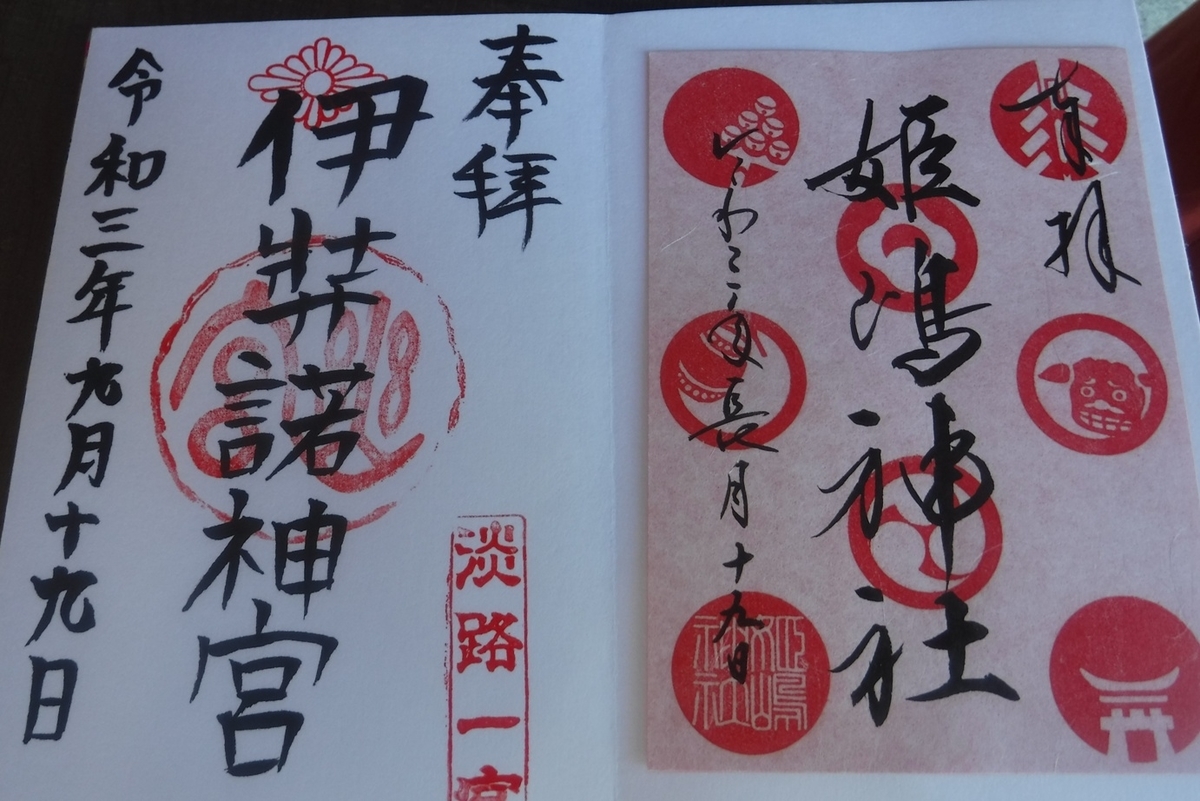 奉拝
姫嶋神社
令和三年長月十九日
姫嶋神社
奉拝
淡路一宮
伊弉諾神宮
令和三年九月十九日